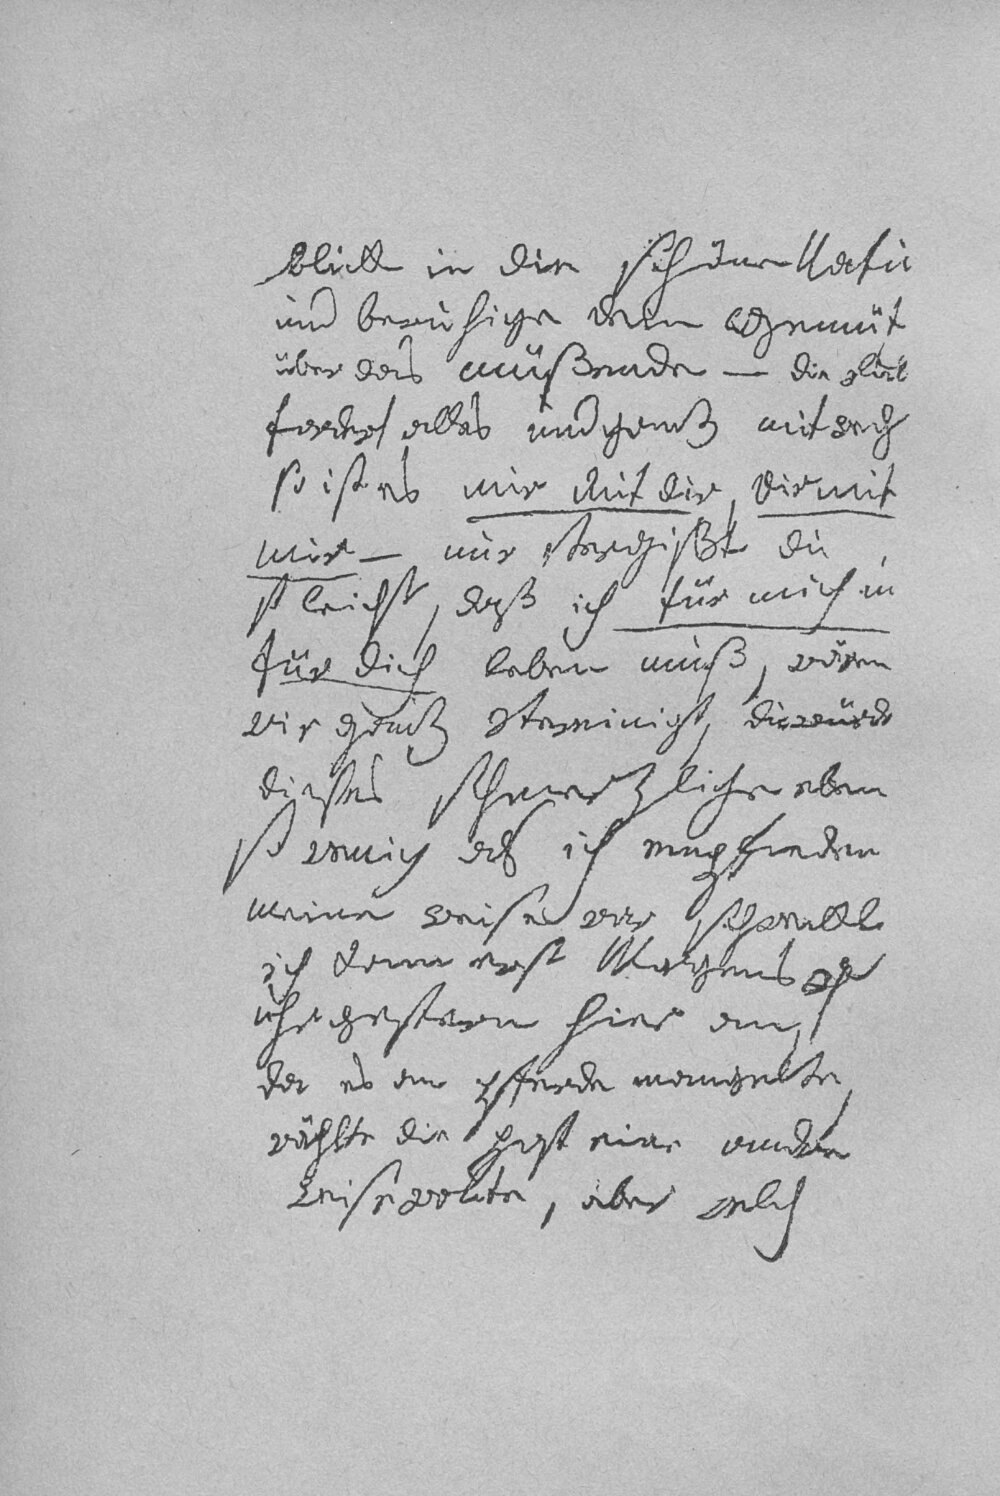 blick in die schöne Natur
und beruhige dein Gemüt
über das müßende — die Liebe
fordert alles und gantz mit recht
so ist es mir mit dir, dir mit
mir — nur vergißt du
so leicht, daß ich für mich u
für dich leben muß, wären
wir gantz vereinigt, du würdest
dieses schmerzliche eben
so wenig als ich empfinden
meine reise war schrecklich
ich kam erst Morgens 4
uhr gestern hier an,
da es an Pferde mangelte,
wählte die Post eine andere
reiseroute, aber welch